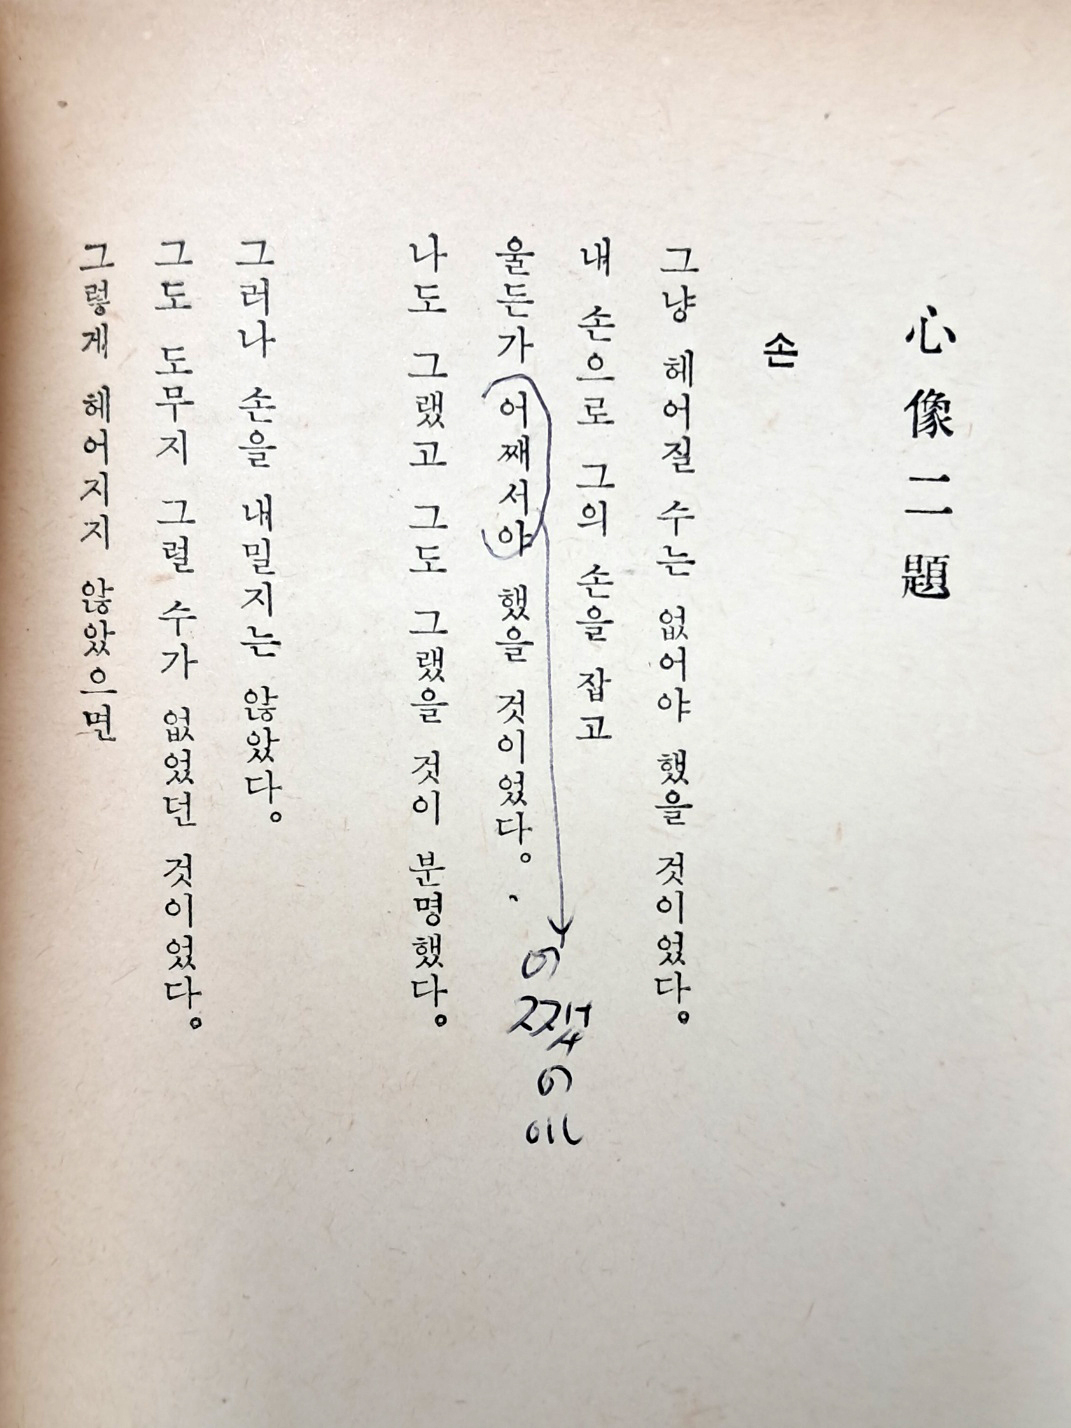 心像二題
손
그냥 헤어질 수는 없어야 했을 것이었다.
내 손으로 그의 손을 잡고
울든가 어째서야 했을 것이었다.
나도 그랬고 그도 그랬을 것이 분명했다.
그러나 손을 내밀지는 않았다.
그도 도무지 그럴 수가 없었던 것이었다.
그렇게 헤어지지 않았으면